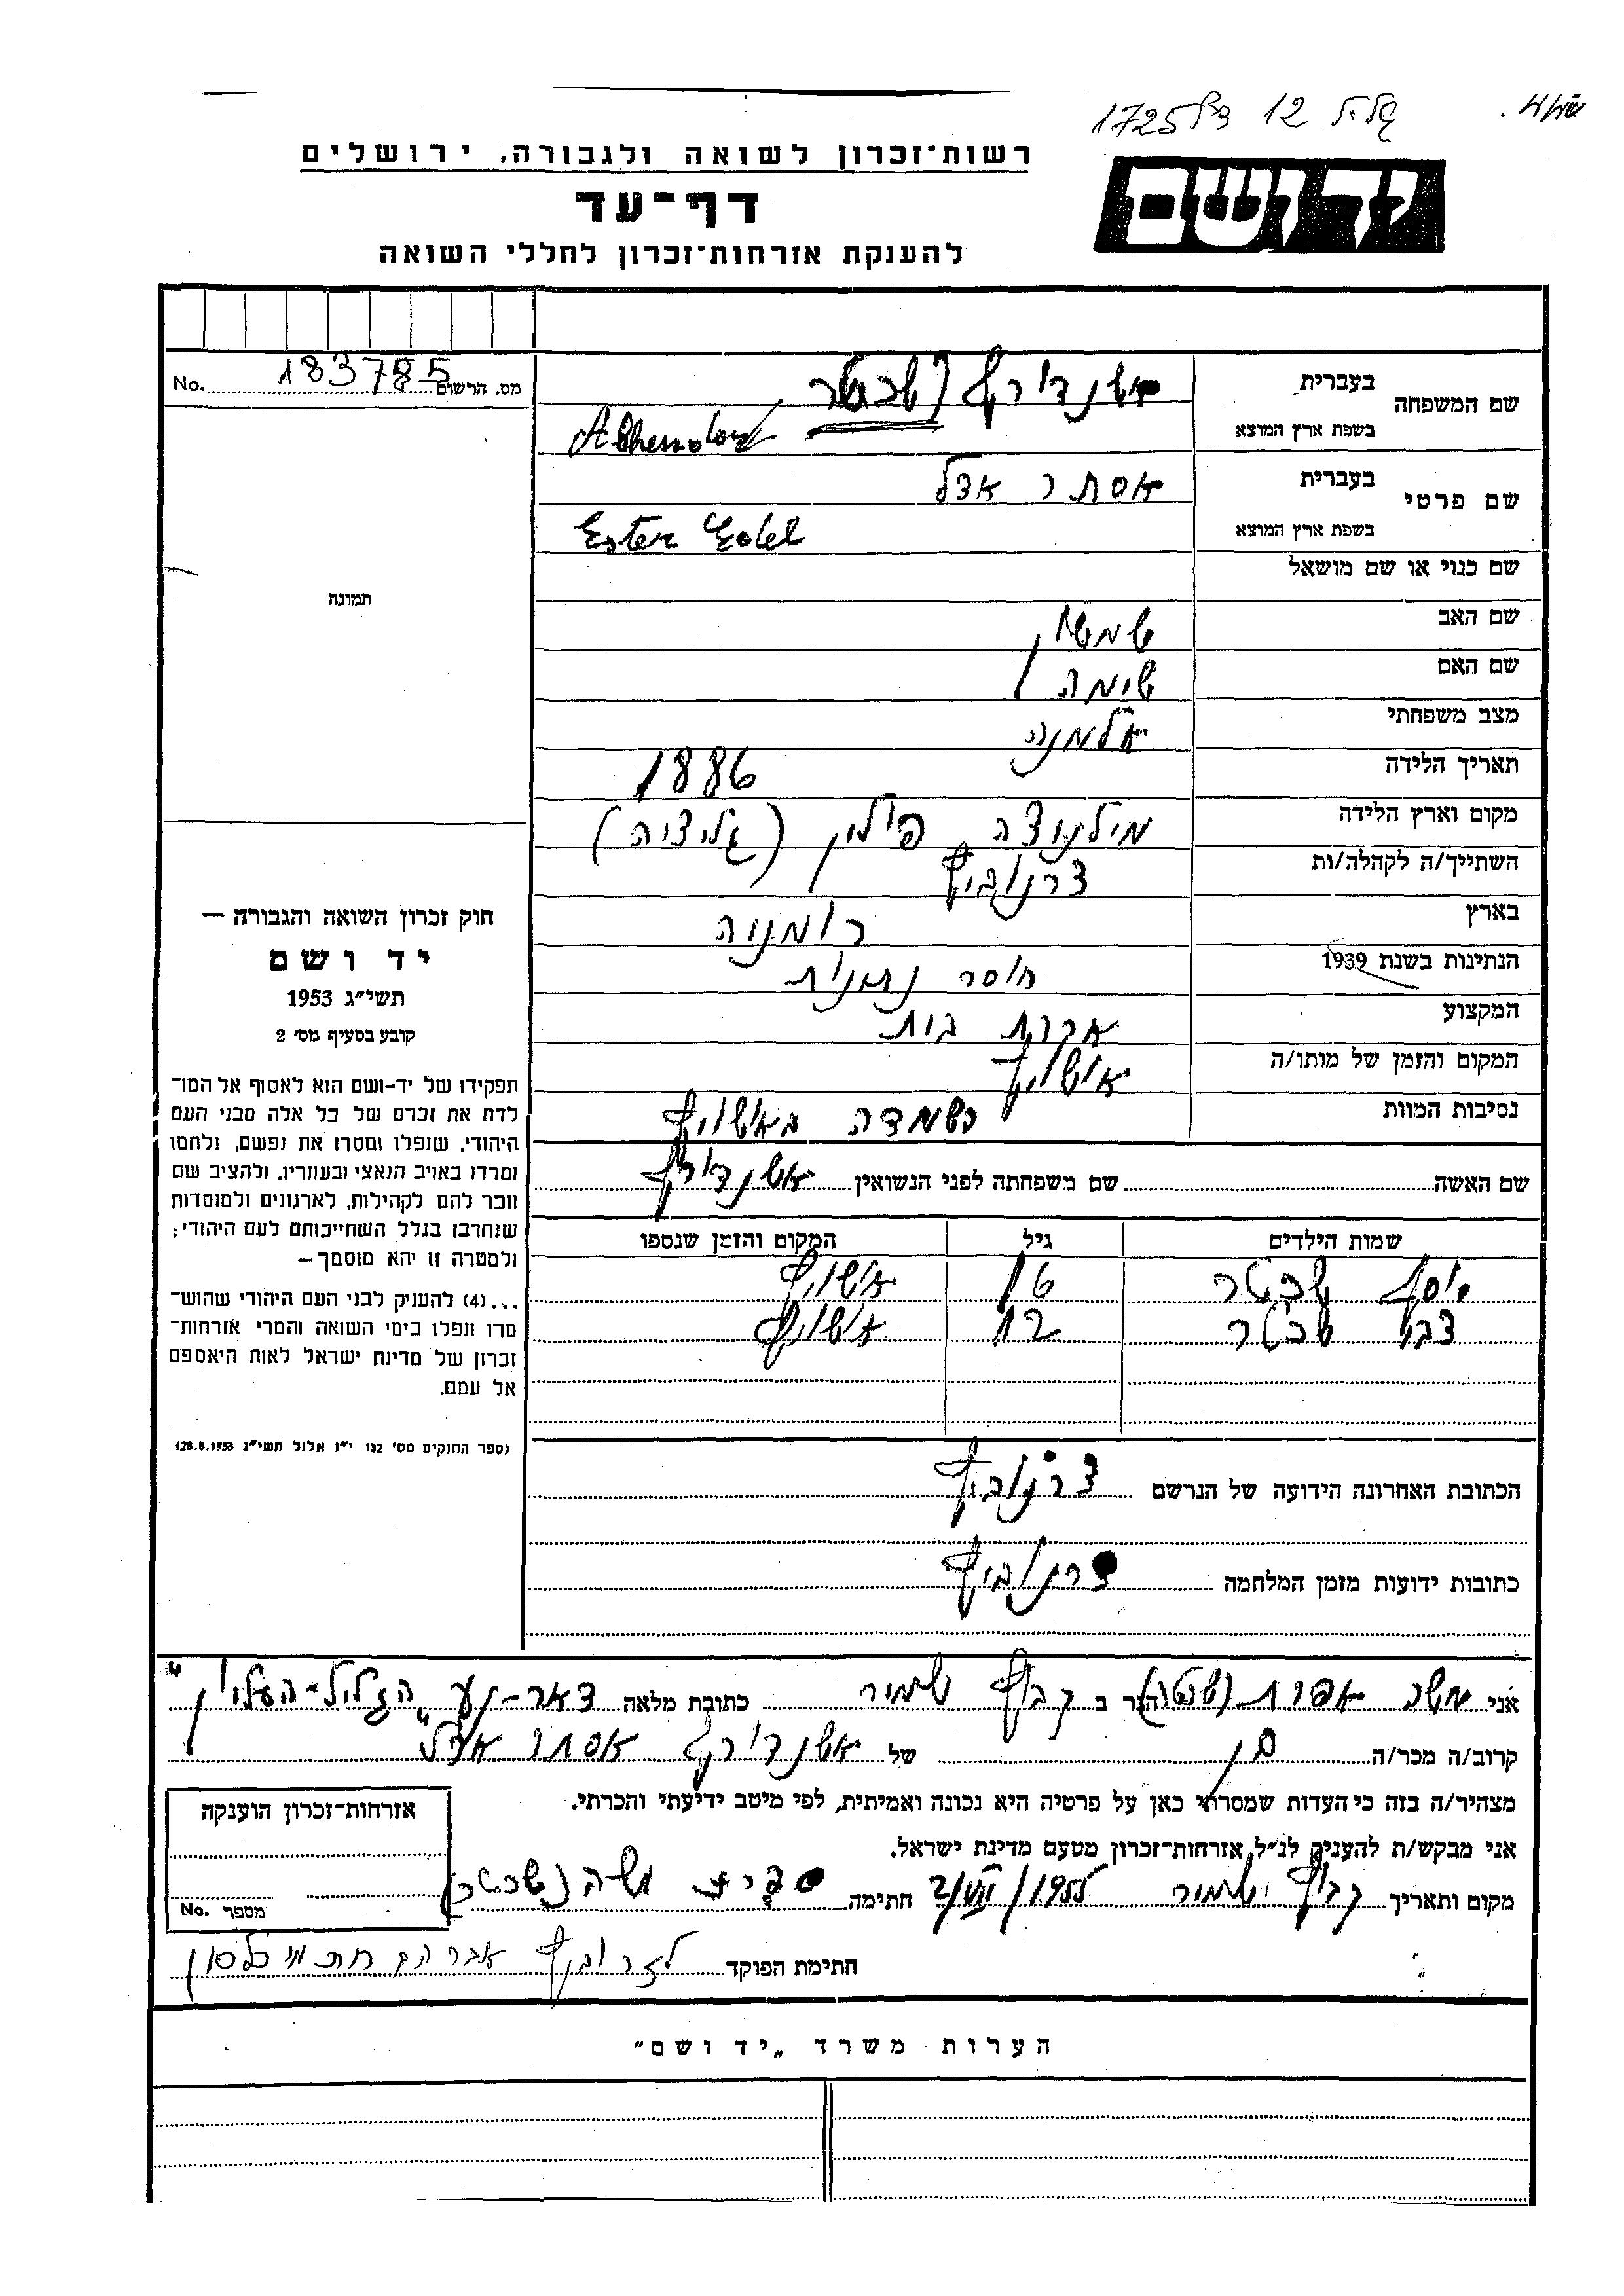 גליל 12 דף 1725
יד ושם
רשות־זכרון לשואה ולגבורה, ירושלים
דף־עד
להענקת אזרחות־זכרון לחללי השואה
מס. הרשום 183785 No.
שם המשפחה
בעברית אשנדורף (שכטר
בשפת ארץ המוצא
שם פרטי
בעברית אסתר אדל
בשפת ארץ המוצא Ester Edel
שם כנוי או שם מושאל
שם האב שמשון
שם האם שימה
מצב משפחתי אלמנה
תאריך הלידה 1886
מקום וארץ הלידה מילנוצה פולין (גליציה)
השתייך/ה לקהלה/ות צרנוביץ
בארץ רומניה
הנתינות בשנת 1939 חוסר נתינות
המקצוע עקרת בית
המקום והזמן של מותו/ה אושויץ
נסיבות המוות נשמדה באושויץ
שם האשה שם משפחתה לפני הנשואין אשנדורף
שמות הילדים גיל המקום והזמן שנספו
יוסף שכטר 16 אושויץ
צבי שכטר 12 אושויץ
הכתובת האחרונה הידועה של הנרשם צרנוביץ
כתובות ידועות מזמן המלחמה צרנוביץ
תמונה
חוק זכרון השואה והגבורה —
יד ושם
תשי״ג 1953
קובע בסעיף מס׳ 2
תפקידו של יד-ושם הוא לאסוף אל המו־
לדת את זכרם של כל אלה מבני העם
היהודי, שנפלו ומסרו את נפשם, נלחמו
ומרדו באויב הנאצי ובעוזריו, ולהציב שם
וזכר להם לקהילות, לארגונים ולמוסדות
שנחרבו בגלל השתייכותם לעם היהודי;
ולמטרה זו יהא מוסמך—
...(4) להעניק לבני העם היהודי שהוש־
מדו ונפלו בימי השואה והמרי אזרחות־
זכרון של מדינת ישראל לאות היאספם
אל עמם.
(ספר החוקים מס׳ 132 י״ז אלול תשי״ג 28.8.1953)
אני אפרת (שכטר) הגר ב קבוץ שמיר כתובת מלאה דאר-נע הגליל-העליון
קרוב/ה מכר/ה בן של אשנדורף אסתר אדל
מצהיר/ה בזה כי העדות שמסרתי כאן על פרטיה היא נכונה ואמיתית, לפי מיטב ידיעתי והכרתי.
אני מבקש/ת להעניק לנ״ל אזרחות־זכרון מטעם מדינת ישראל.
מקום ותאריך קבוץ שמיר חתימה
אזרחות־זכרון הוענקה
מספר No.
חתימת הפוקד אברהם
הערות משרד „יד ושם״